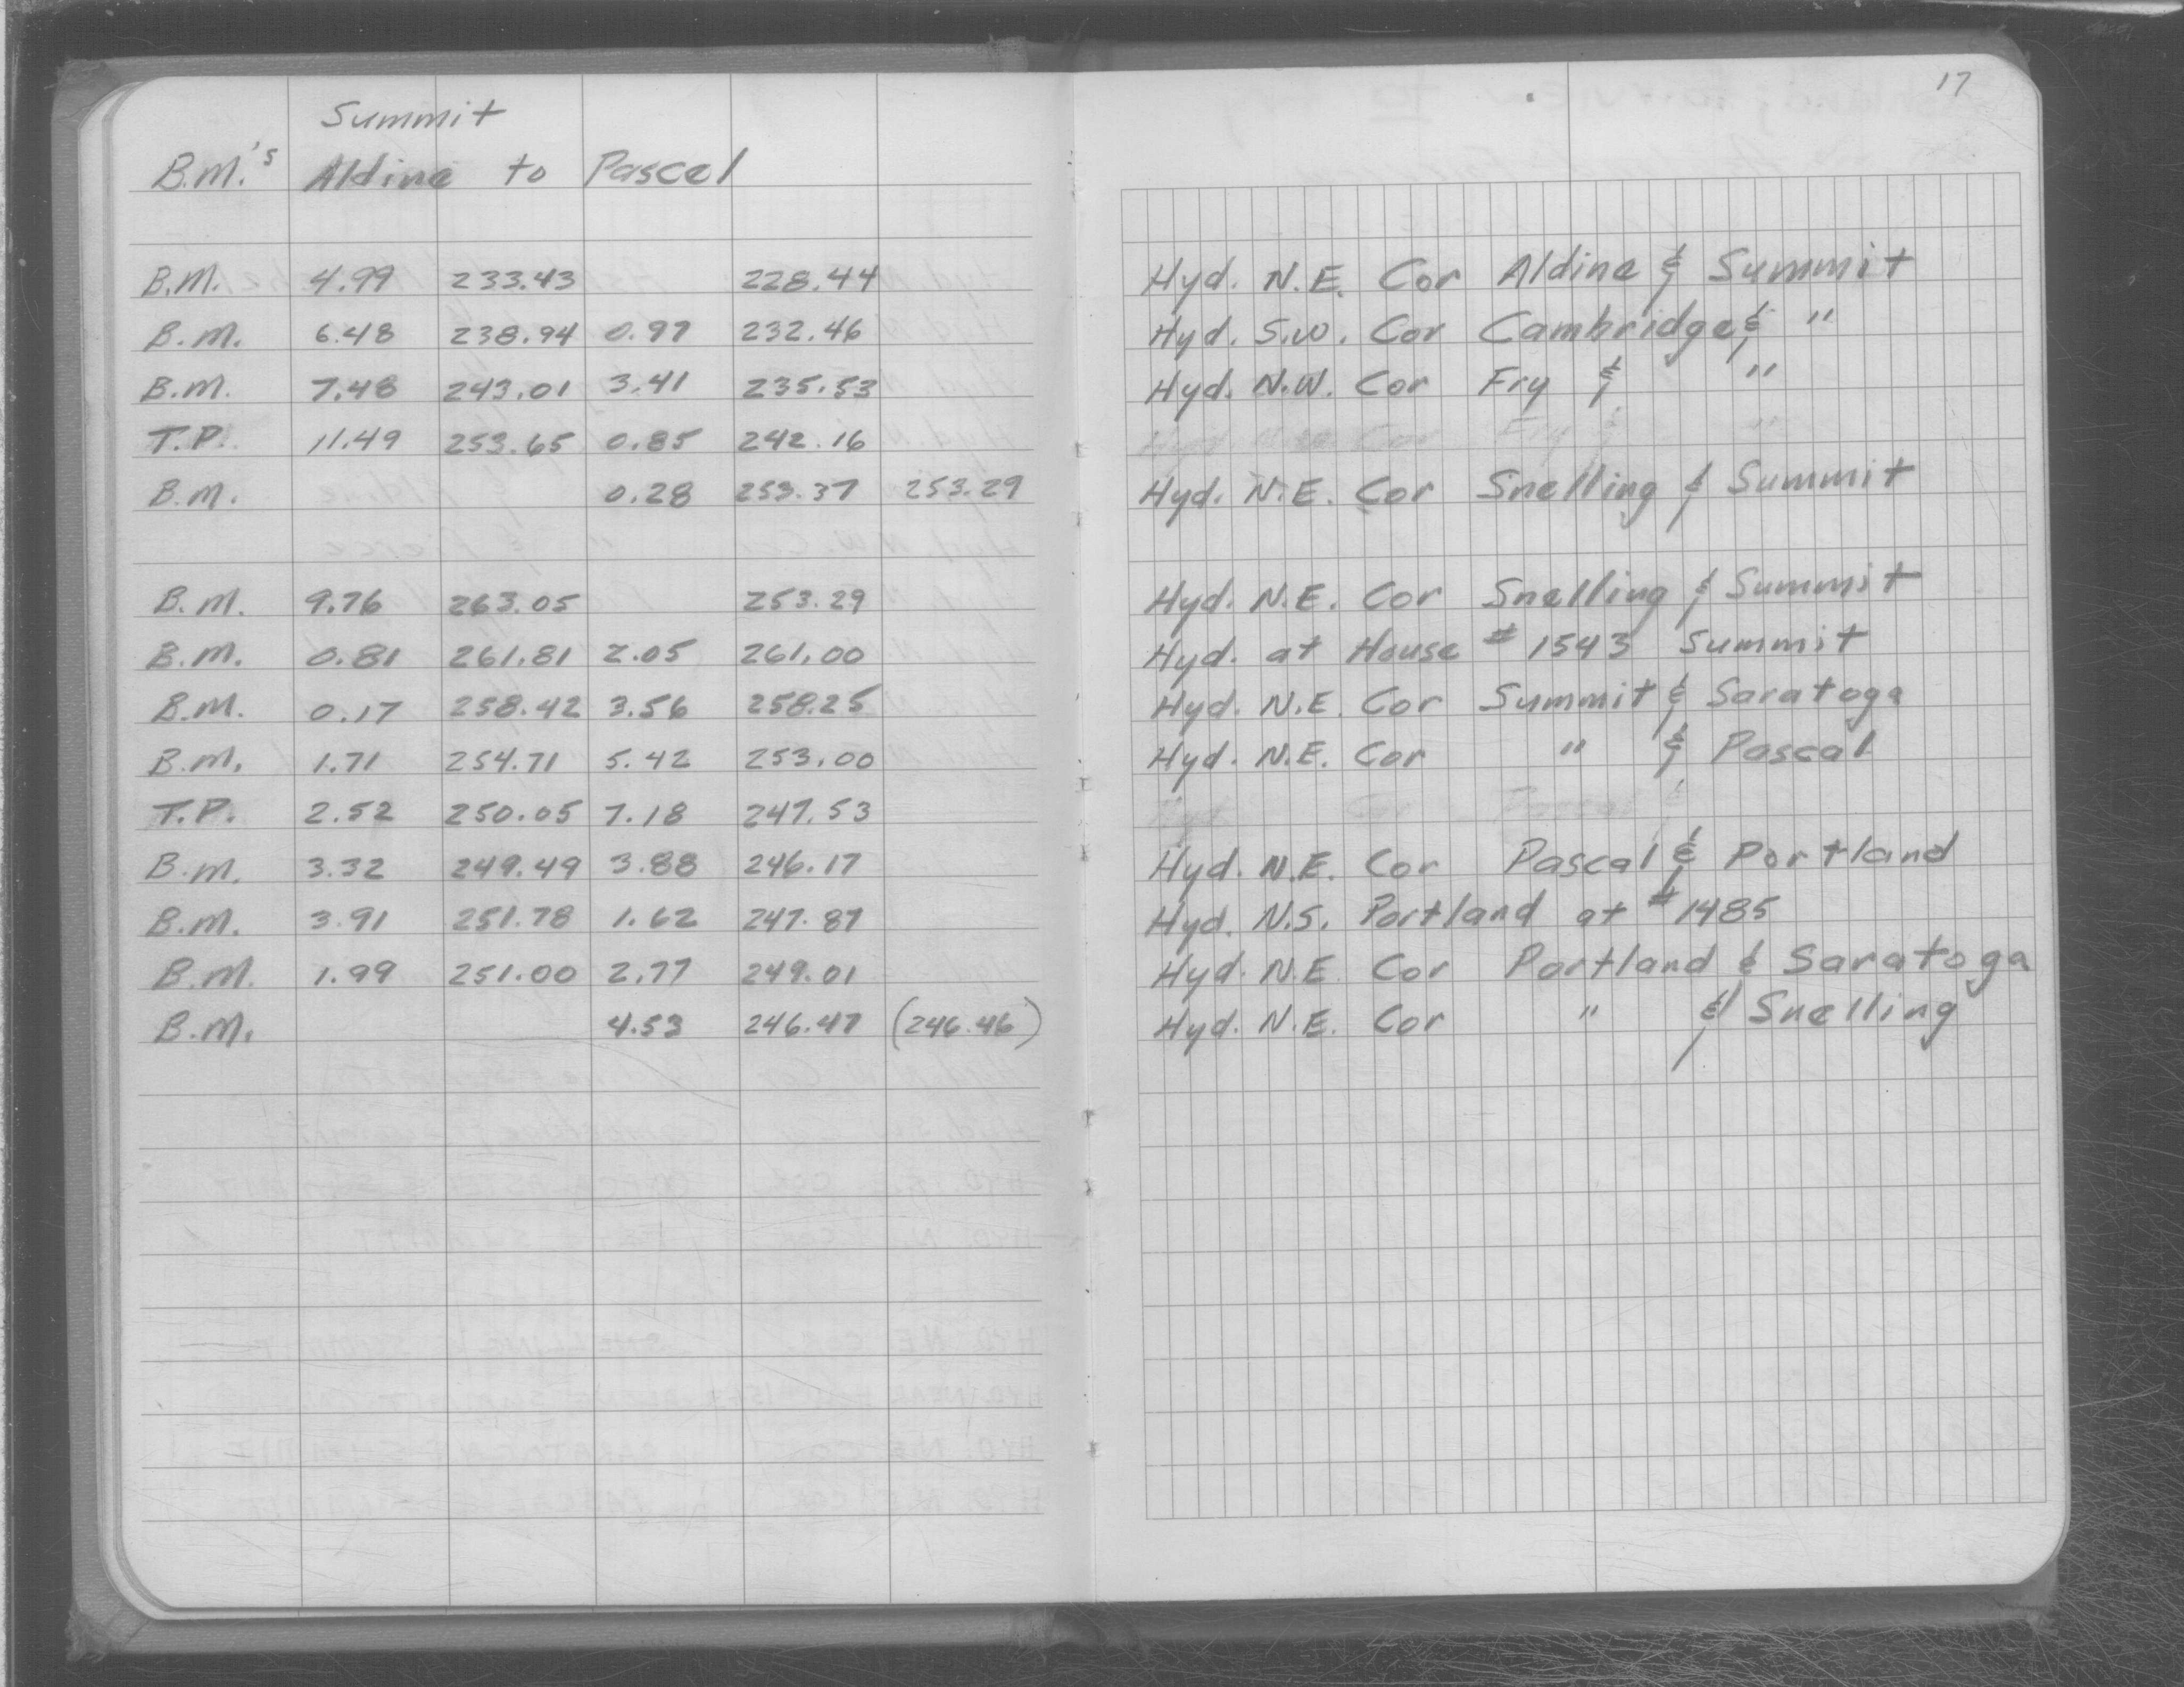 17
Summit
B.M.'s Aldine to Pascel
B.M. 4.99 233.43 228.44 Hyd. N.E. Cor Aldine & Summit
B.M. 6.48 238.94 0.97 232.46 Hyd. S.W. Cor Cambridge & "
B.M. 7.48 243.01 3.41 235.53 Hyd. N.W. Cor Fry & "
T.P. 11.49 253.65 0.85 242.16
B.M. 0.28 253.37 253.29 Hyd. N.E. Cor Snelling & Summit
B.M. 9.76 263.05 253.29 Hyd. N.E. Cor Snelling & Summit
B.M. 0.81 261.81 2.05 261.00 Hyd. at House # 1543 Summit
B.M. 0.17 258.42 3.56 258.25 Hyd. N.E. Cor Summit & Saratoga
B.M. 1.71 254.71 5.42 253.00 Hyd. N.E. Cor " & Pascal
T.P. 2.52 250.05 7.18 247.53
B.M. 3.32 249.49 3.88 246.17 Hyd. N.E. Cor Pascal & Portland
B.M. 3.91 251.78 1.62 247.87 Hyd. N.S. Portland at #1485
B.M. 1.99 251.00 2.77 249.01 Hyd. N.E. Cor Portland & Saratoga
B.M. 4.53 246.47 (246.46) Hyd. N.E. Cor " & Snelling